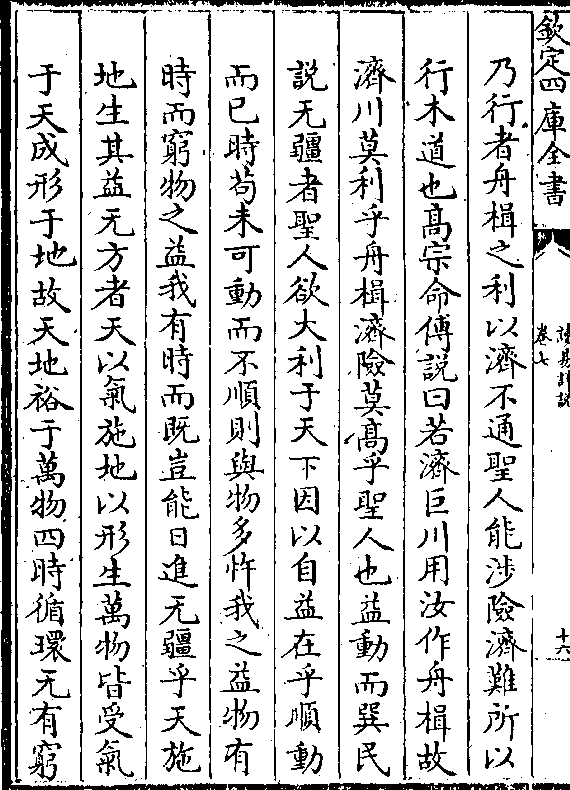 欽定四庫全書
讀易詳說
卷七
十六
乃行者舟楫之利以濟不通聖人能涉險濟難所以
行木道也髙宗命傅說曰若濟巨川用汝作舟楫故
濟川莫利乎舟楫濟險莫髙乎聖人也益動而巽民
說无疆者聖人欲大利于天下因以自益在乎順動
而已時苟未可動而不順則與物多忤我之益物有
時而窮物之益我有時而既豈能日進无疆乎天施
地生其益无方者天以氣施地以形生萬物皆受氣
于天成形于地故天地裕于萬物四時循環无有窮